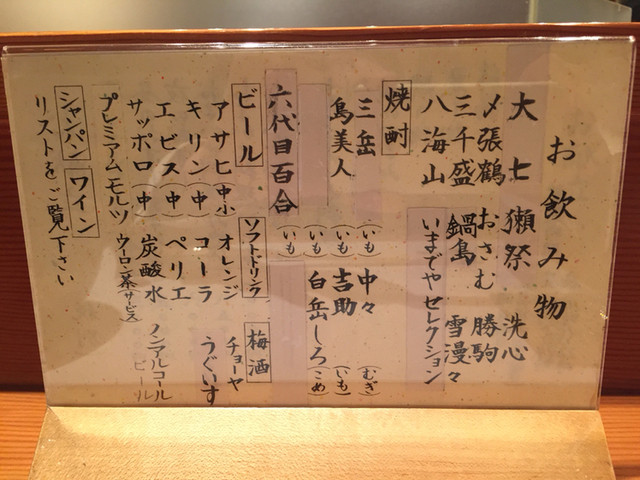 お飲み物
大七 獺祭 洗心
〆張鶴 おさむ 勝駒
三千盛 鍋島 雪漫々
八海山 いまでやセレクション
焼酎
三岳 (いも) 中々 (むぎ)
島美人 (いも) 吉助 (いも)
(いも) 白岳しろ (こめ)
六代目百合 (いも)
ビール
アサヒ (中小)
キリン (中)
エビス (中)
サッポロ (中)
プレミアムモルツ
ソフトドリンク
オレンジ
コーラ
ペリエ
炭酸水
ウーロン茶(サービス)
梅酒
チョーヤ
うぐいす
ノンアルコール
ビール
シャンパン ワイン
リストをご覧下さい